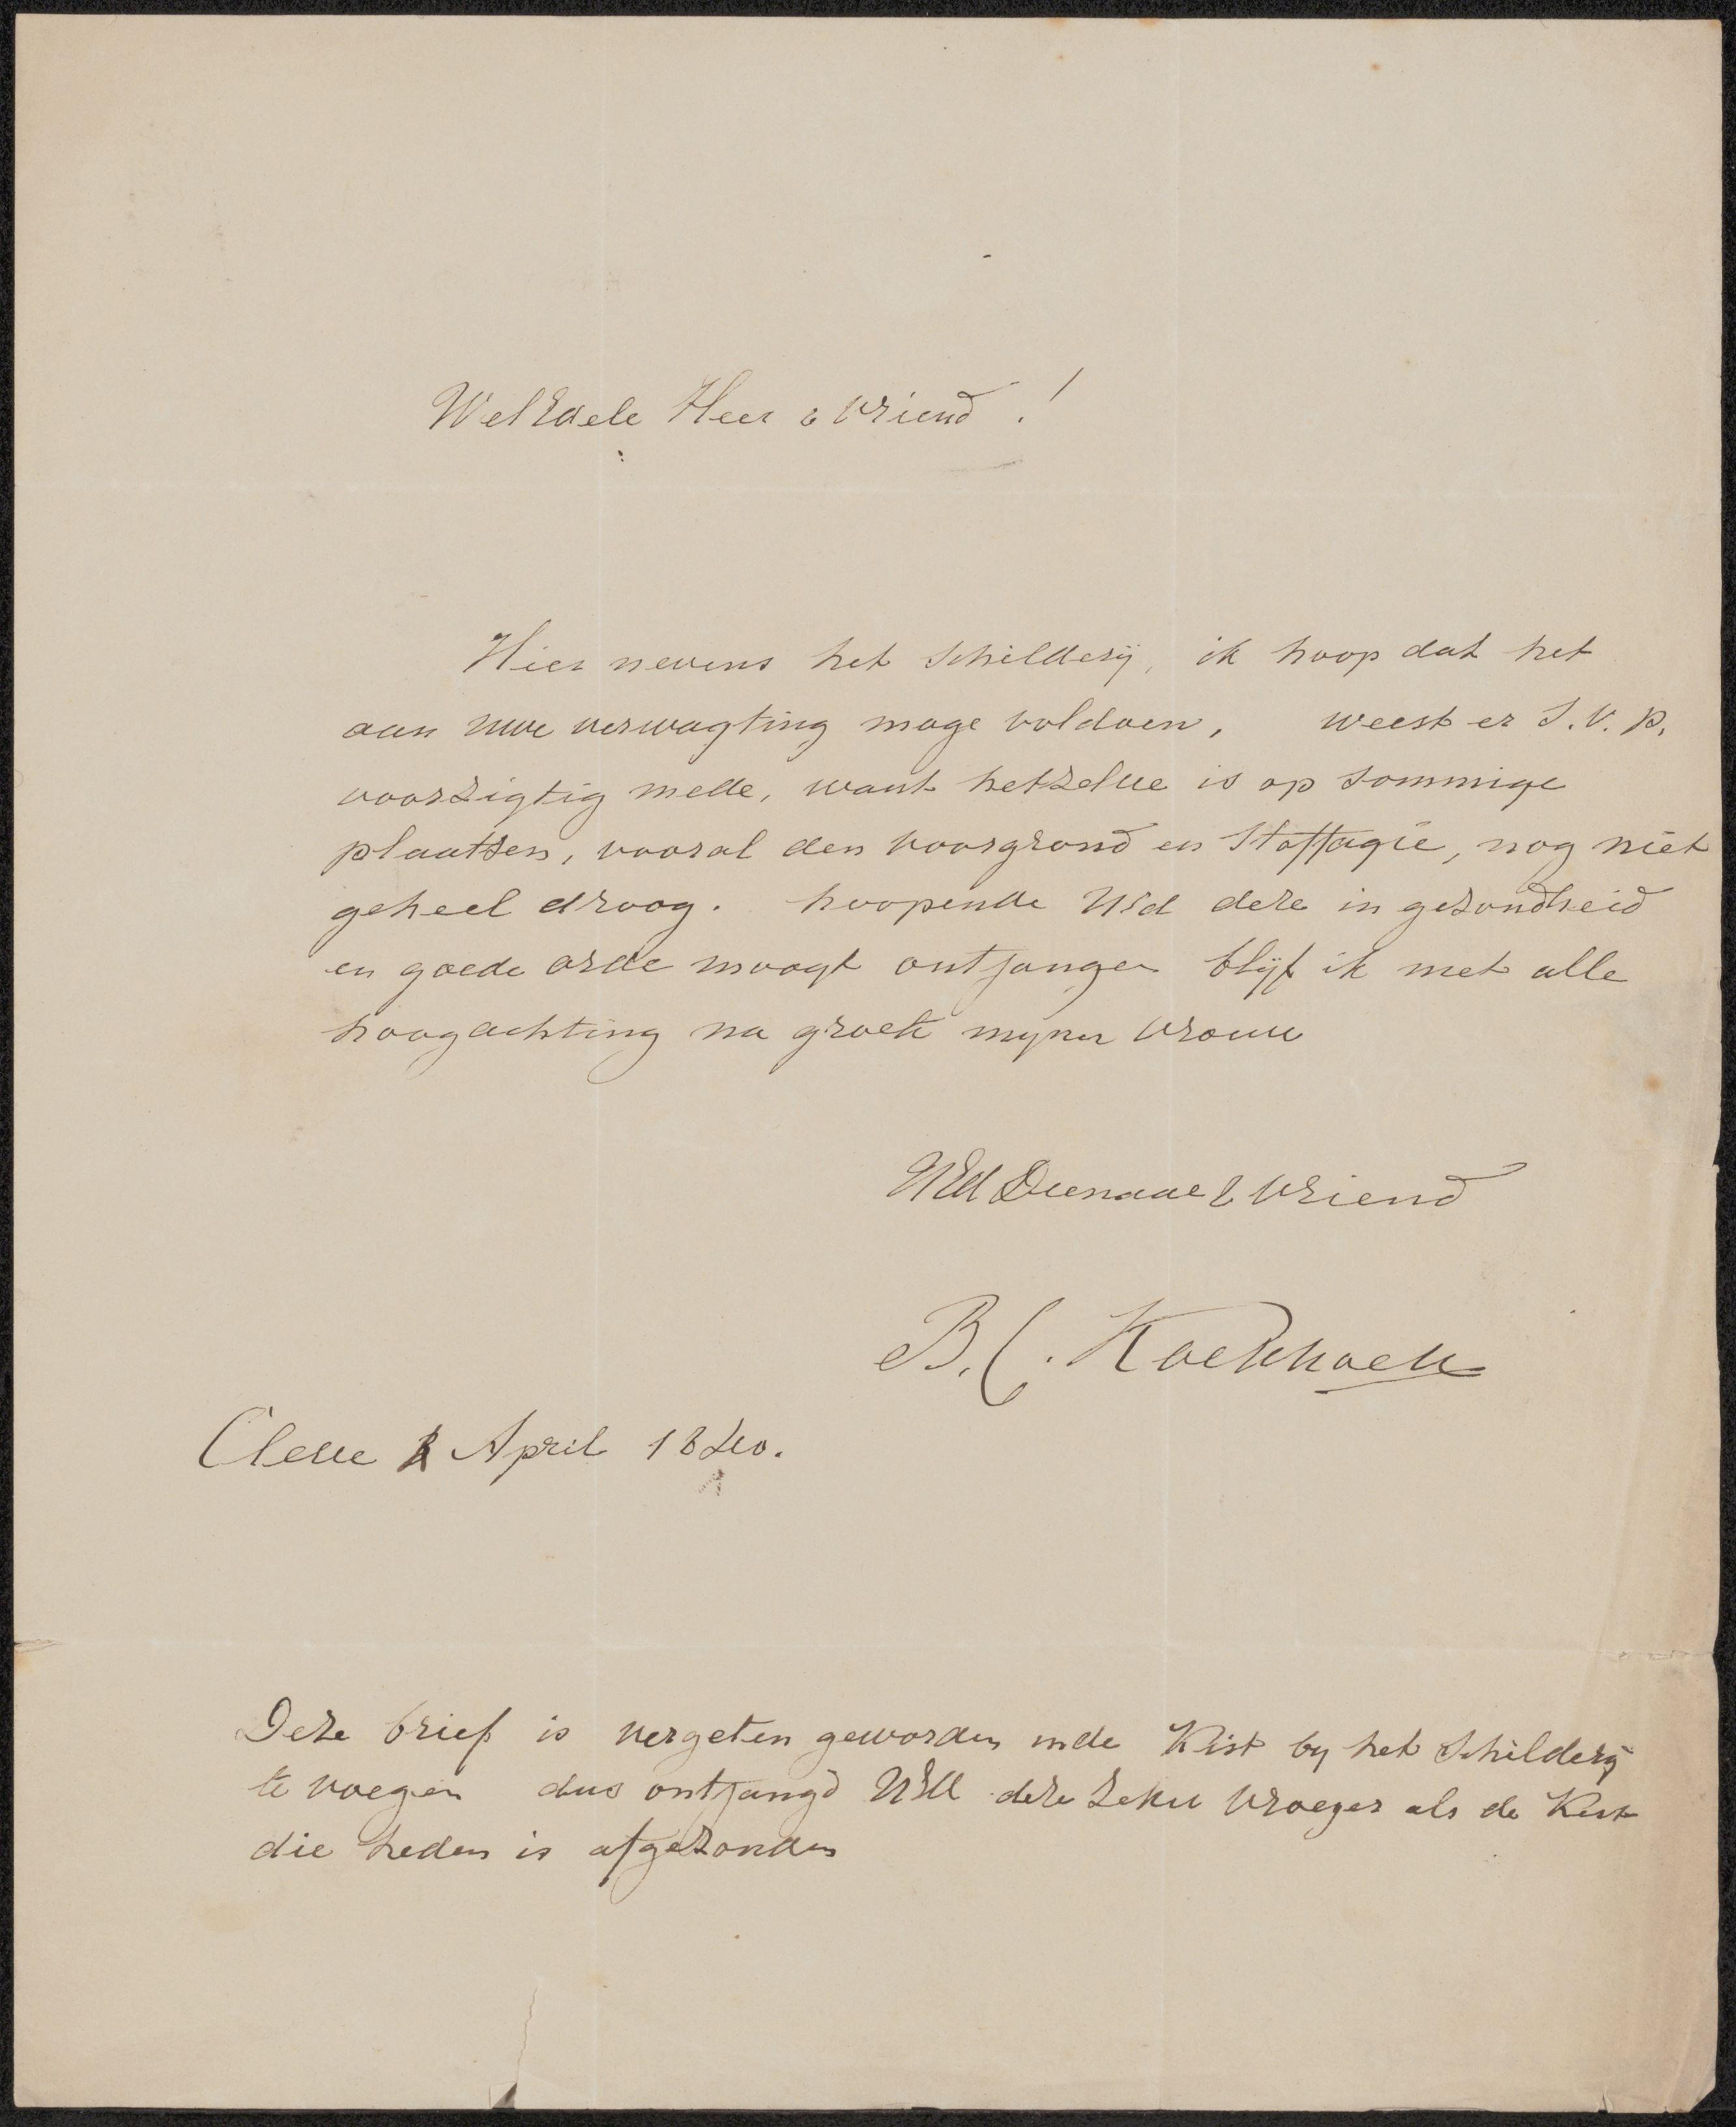 WelEdele Heer & Vriend !
Hier nevens het Schilderij, ik hoop dat het
aan uwe verwagting moge voldoen, weest er S.V.P.
voorzigtig mede, want hetzelve is op sommige
plaatsen, vooral den voorgrond en Staffagie, nog niet
geheel droog. hoopende UEd deze in gezondheid
en goede orde moogt ontfangen blijf ik met alle
hoogachting na groete mijner vrouw
UEd Dienaar & Vriend
B. C. Koekkoek
Cleve April 1840.
Deze brief is vergeten geworden in de Kist by het Schilderij
te voegen dus ontfangd UEd deze zeker vroeger als de Kist
die heden is afgezonden